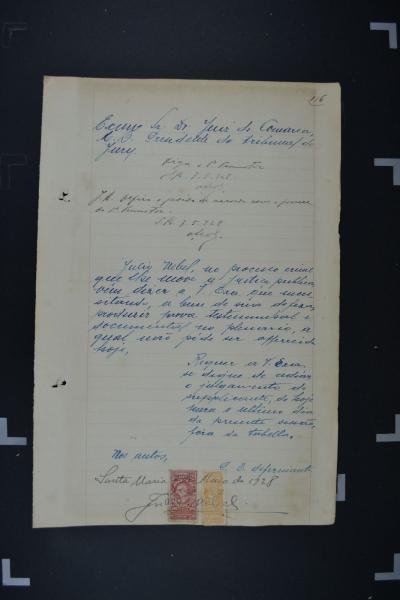 116
Exmo Sr. Dr. Juiz de Comarca,
M. D. Presidente do Tribunal do
Jury.
Diga o Dr Promotor
S.M. 7.5.928
J.A. Defiro o pedido de accordo com o parecer
do Dr Promotor.
S.M. 7.5.928
Julio Nebel, no processo crime
que lhe move a Justiça publica
vem dizer a V. Exa. que neces-
sitando, a bem de sua defesa,
produzir prova testemunhal e
documental no plenario, a
qual não pôde ser offerecida
hoje,
Requer a V. Exa.
se digne de adiar
o julgamento do
supplicante, de hoje
para o ultimo dia
da presente sessão,
fóra da tabella.
Nos autos,
E. E. deferimento
Santa Maria Maio de 1928